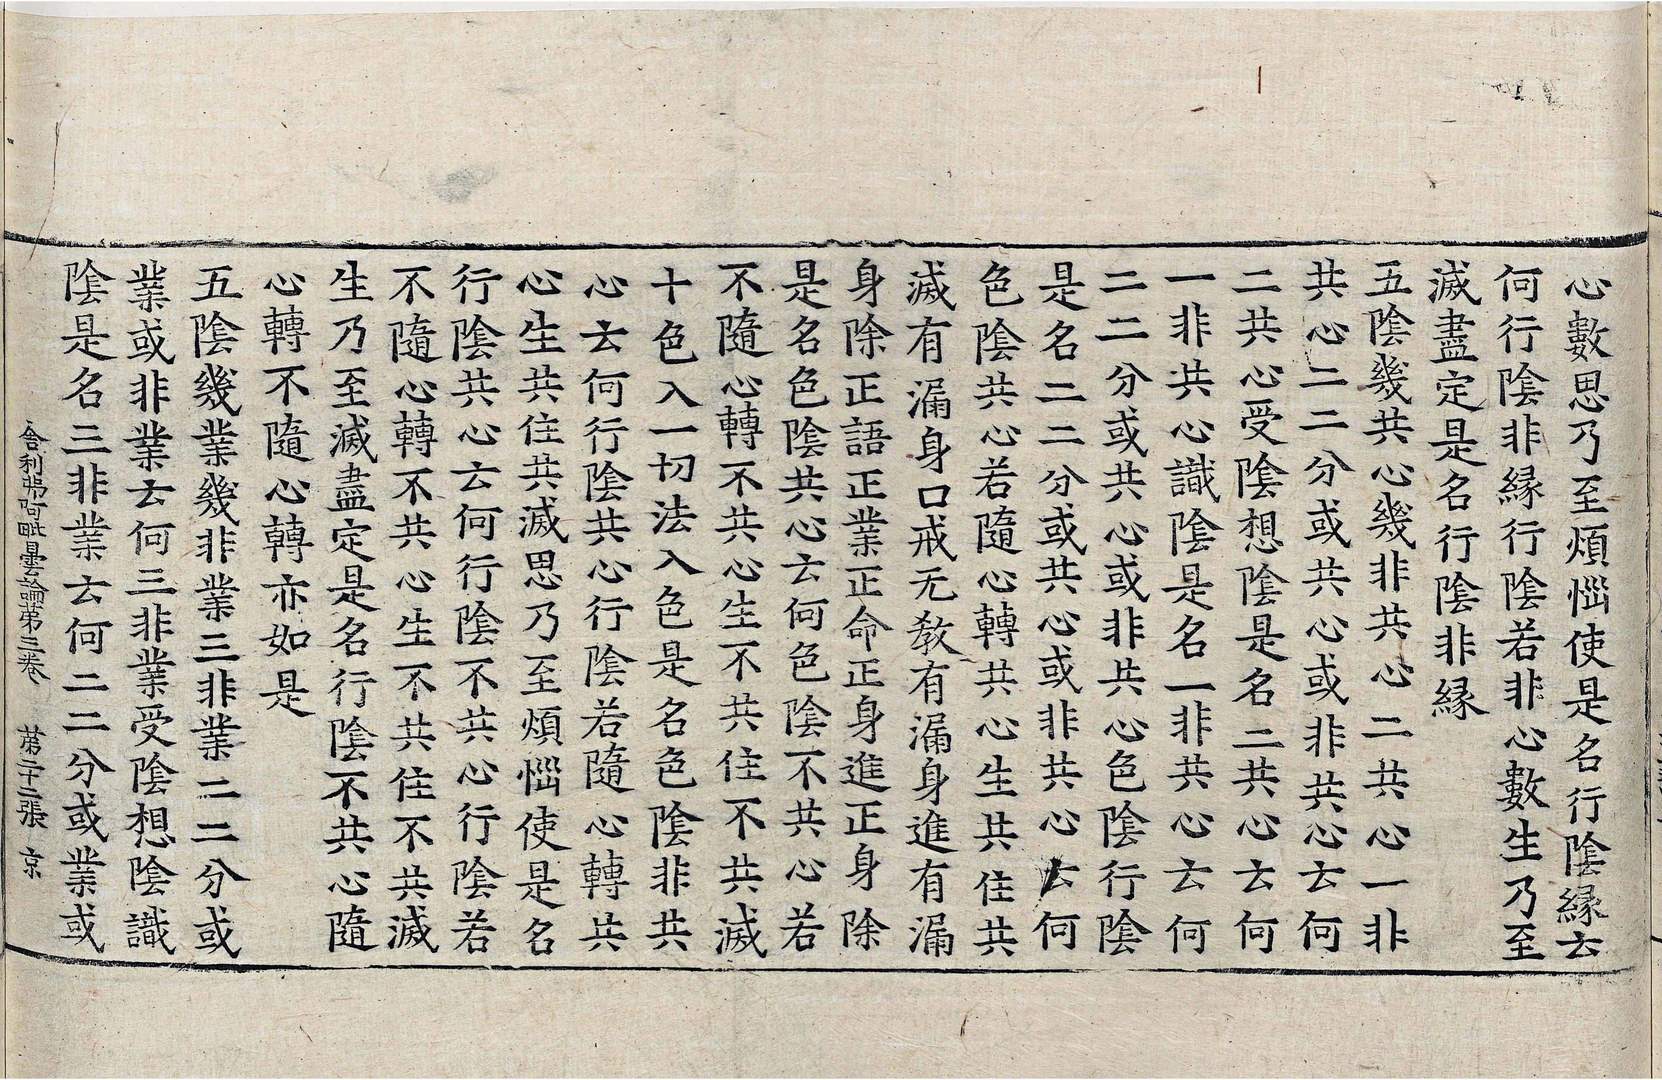 心數思乃至煩惱使是名行陰緣云
何行陰非緣行陰若非心數生乃至
滅盡定是名行陰非緣
五陰幾共心幾非共心二共心一非
共心二二分或共心或非共心云何
二共心受陰想陰是名二共心云何
一非共心識陰是名一非共心云何
二二分或共心或非共心色陰行陰
是名二二分或共心或非共心云何
色陰共心若隨心轉共心生共住共
滅有漏身口戒无教有漏身進有漏
身除正語正業正命正身進正身除
是名色陰共心云何色陰不共心若
不隨心轉不共心生不共住不共滅
十色入一切法入色是名色陰非共
心云何行陰共心行陰若隨心轉共
心生共住共滅思乃至煩惱使是名
行陰共心云何行陰不共心行陰若
不隨心轉不共心生不共住不共滅
生乃至滅盡定是名行陰不共心隨
心轉不隨心轉亦如是
五陰幾業幾非業三非業二二分或
業或非業云何三非業受陰想陰識
陰是名三非業云何二二分或業或
舍利弗阿毗曇論第三卷 第二十二張 京